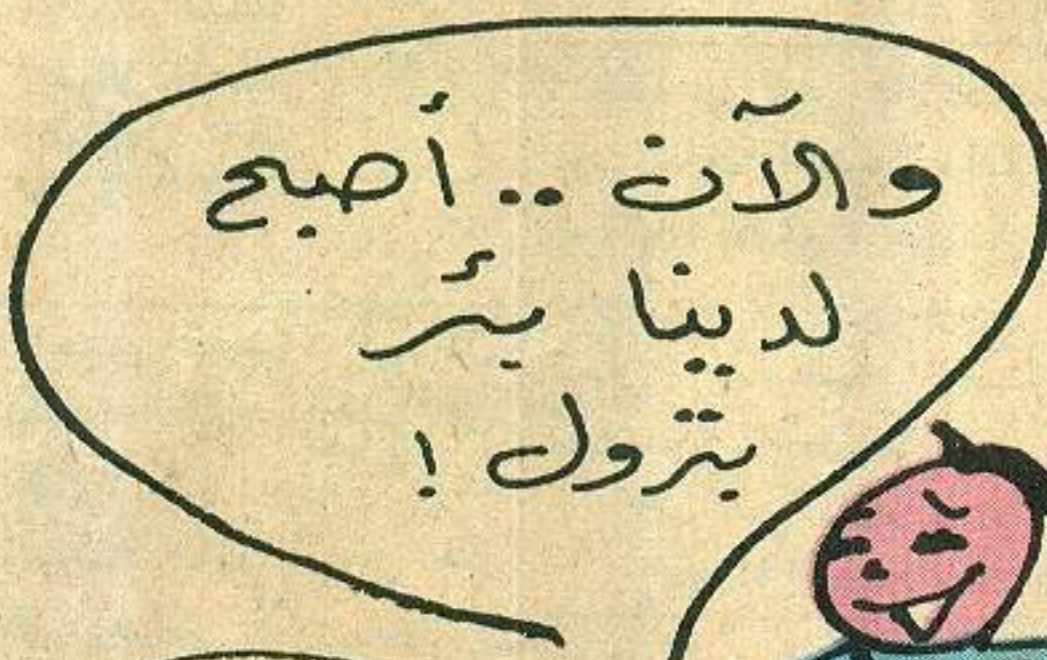 والآن .. أصبح
لدينا بئر
بترول !